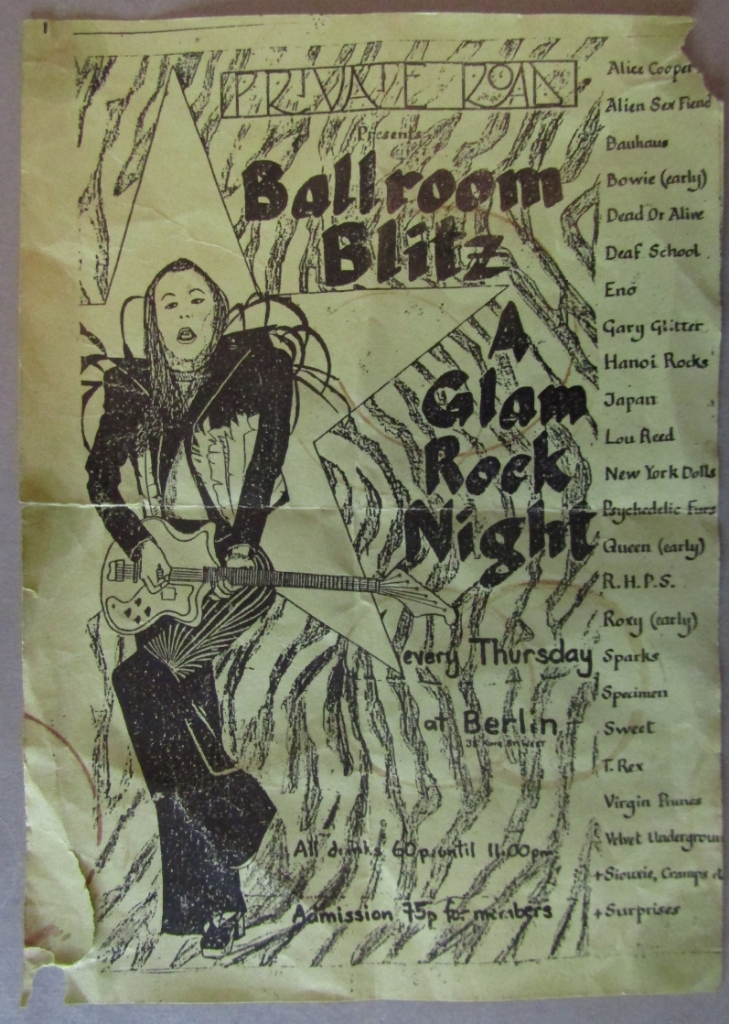 PRIVATE ROAD
Presents
Ballroom
Blitz
A
Glam
Rock
Night
every Thursday
at Berlin
All drinks 60p until 11.00pm
Admission 75p for members
Alice Cooper
Alien Sex Fiend
Bauhaus
Bowie (early)
Dead Or Alive
Deaf School
Eno
Gary Glitter
Hanoi Rocks
Japan
Lou Reed
New York Dolls
Psychedelic Furs
Queen (early)
R.H.P.S.
Roxy (early)
Sparks
Specimen
Sweet
T. Rex
Virgin Prunes
Velvet Undergroun
+ Siouxie, Cramps
+ Surprises